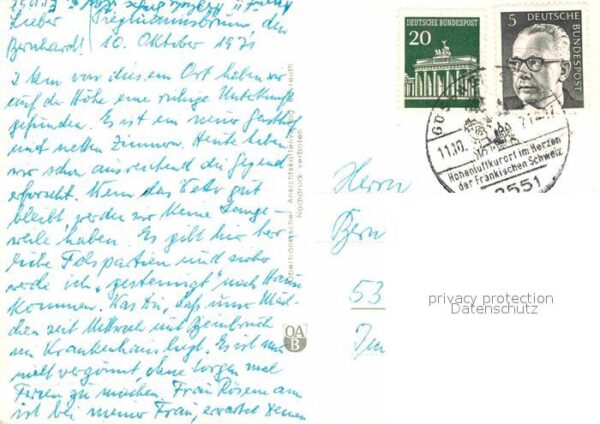 Lieber
Bernhard! 10. Oktober 1971
2 km von diesem Ort haben wir
auf der Höhe eine ruhige Unterkunft
gefunden. Es ist ein neuer Gasthof
mit netten Zimmern. Heute haben
wir schon ausreichend die Gegend
erforscht. Wenn das gut
bleibt werden wir keine Lange-
weile haben. Es gibt hier herr-
liche Felspartien und sicher
werde ich "gesteinigt" nach Hause
kommen. Was Du, daß unser Mäd-
chen seit Mittwoch mit Beinbruch
im Krankenhaus liegt. Es ist uns
nicht vergönnt, ohne Sorgen mal
Ferien zu machen. Frau
ist bei meiner Frau, erwartet
Oberfränkischer Ansichtskartenverlag Bayreuth
Nachdruck verboten
OA
B
DEUTSCHE BUNDESPOST
20
5
DEUTSCHE
BUNDESPOST
11.10.
Höhenluftkurort im Herzen
der Fränkischen Schweiz
8551
Herrn
Bern
53
privacy protection
Datenschutz